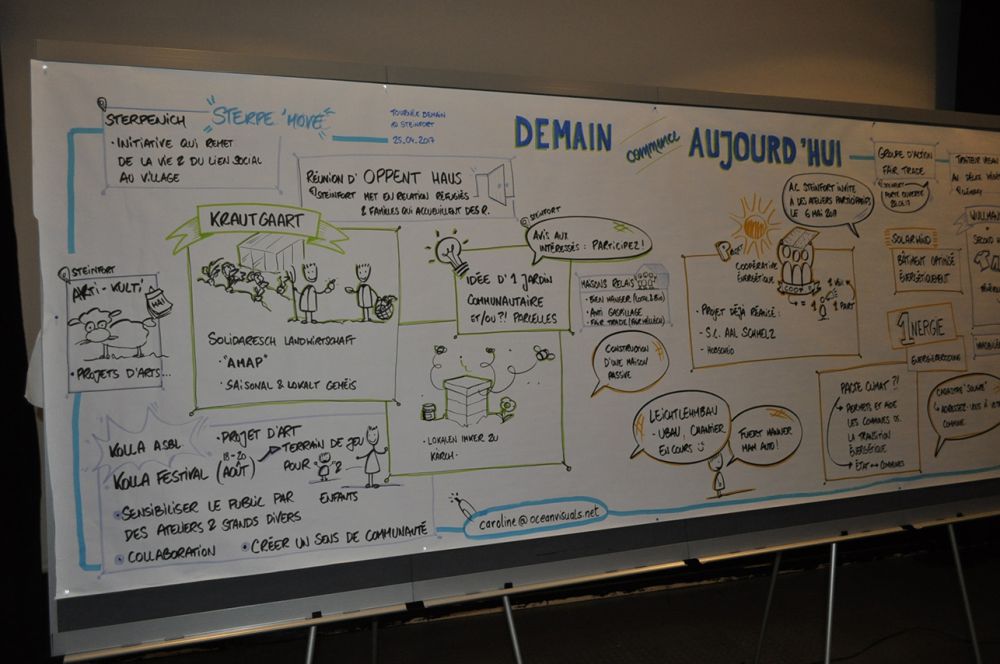 STERPENICH
STERPE 'MOVE'
• INITIATIVE QUI REMET
DE LA VIE & DU LIEN SOCIAL
AU VILLAGE
TOURNÉE DEMAIN
STEINFORT
25.04.2017
DEMAIN commence AUJOURD'HUI
RÉUNION D' OPPENT HAUS
STEINFORT MET EN RELATION RÉFUGIÉS
& FAMILLES QUI ACCUEILLENT DES R.
KRAUTGAART
SOLIDARESCH LANDWIRTSCHAFT
• "AMAP"
• SAISONAL & LOKALT GEMÉIS
STEINFORT
ARTI-KULTI'
MAI
• PROJETS D'ARTS...
KOLLA ASBL
KOLLA FESTIVAL (18-20 AOÛT)
• PROJET D'ART
TERRAIN DE JEU
POUR
ENFANTS
• SENSIBILISER LE PUBLIC PAR
DES ATELIERS & STANDS DIVERS
• COLLABORATION • CRÉER UN SENS DE COMMUNAUTÉ
STEINFORT
AVIS AUX
INTÉRESSÉS : PARTICIPEZ!
IDÉE D'1 JARDIN
COMMUNAUTAIRE
ET/OU?! PARCELLES
- LOKALEN IMKER ZU
KÄRCH -
caroline@oceanvisuals.net
MAISONS RELAIS
- BIEN MANGER (LOCAL & BIO)
- ANTI GASPILLAGE
- FAIR TRADE
CONSTRUCTION
D'UNE MAISON
PASSIVE
LEICHTLEHMBAU
- UBAU, CHANTIER
EN COURS
FUERT MANNER
MAM AUTO!
A.C. STEINFORT INVITE
À DES ATELIERS PARTICIPATIFS
LE 6 MAI 2017
PROJET
COOPÉRATIVE
ÉNERGÉTIQUE
COOP
1 PART
• PROJET DÉJÀ RÉALISÉ :
- S.C. AAL SCHMELZ
- HOBSCHÉID
PACTE CLIMAT ?!
PERMETS ET AIDE
LES COMMUNES DS.
LA TRANSITION
ÉNERGÉTIQUE
ÉTAT ↔ COMMUNES
GROUPE D'ACTION
FAIR TRADE
STEINFORT
PORTE OUVERTE
SOLARWIND
BÂTIMENT OPTIMISÉ
ÉNERGÉTIQUEMENT
1NERGIE
CADASTRE "SOLAIRE"
ADRESSEZ-VOUS À VOTRE
COMMUNE